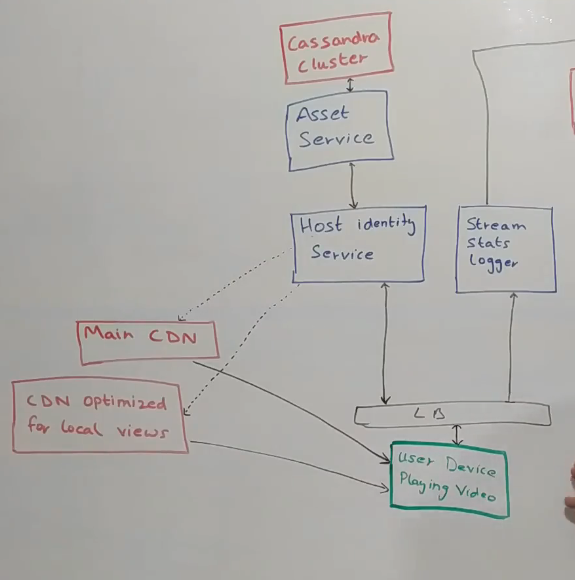 Cassandra
cluster
Asset
Service
Host identity
Service
Stream
stats
logger
Main CDN
CDN optimized
for local views
LB
User Device
Playing Video